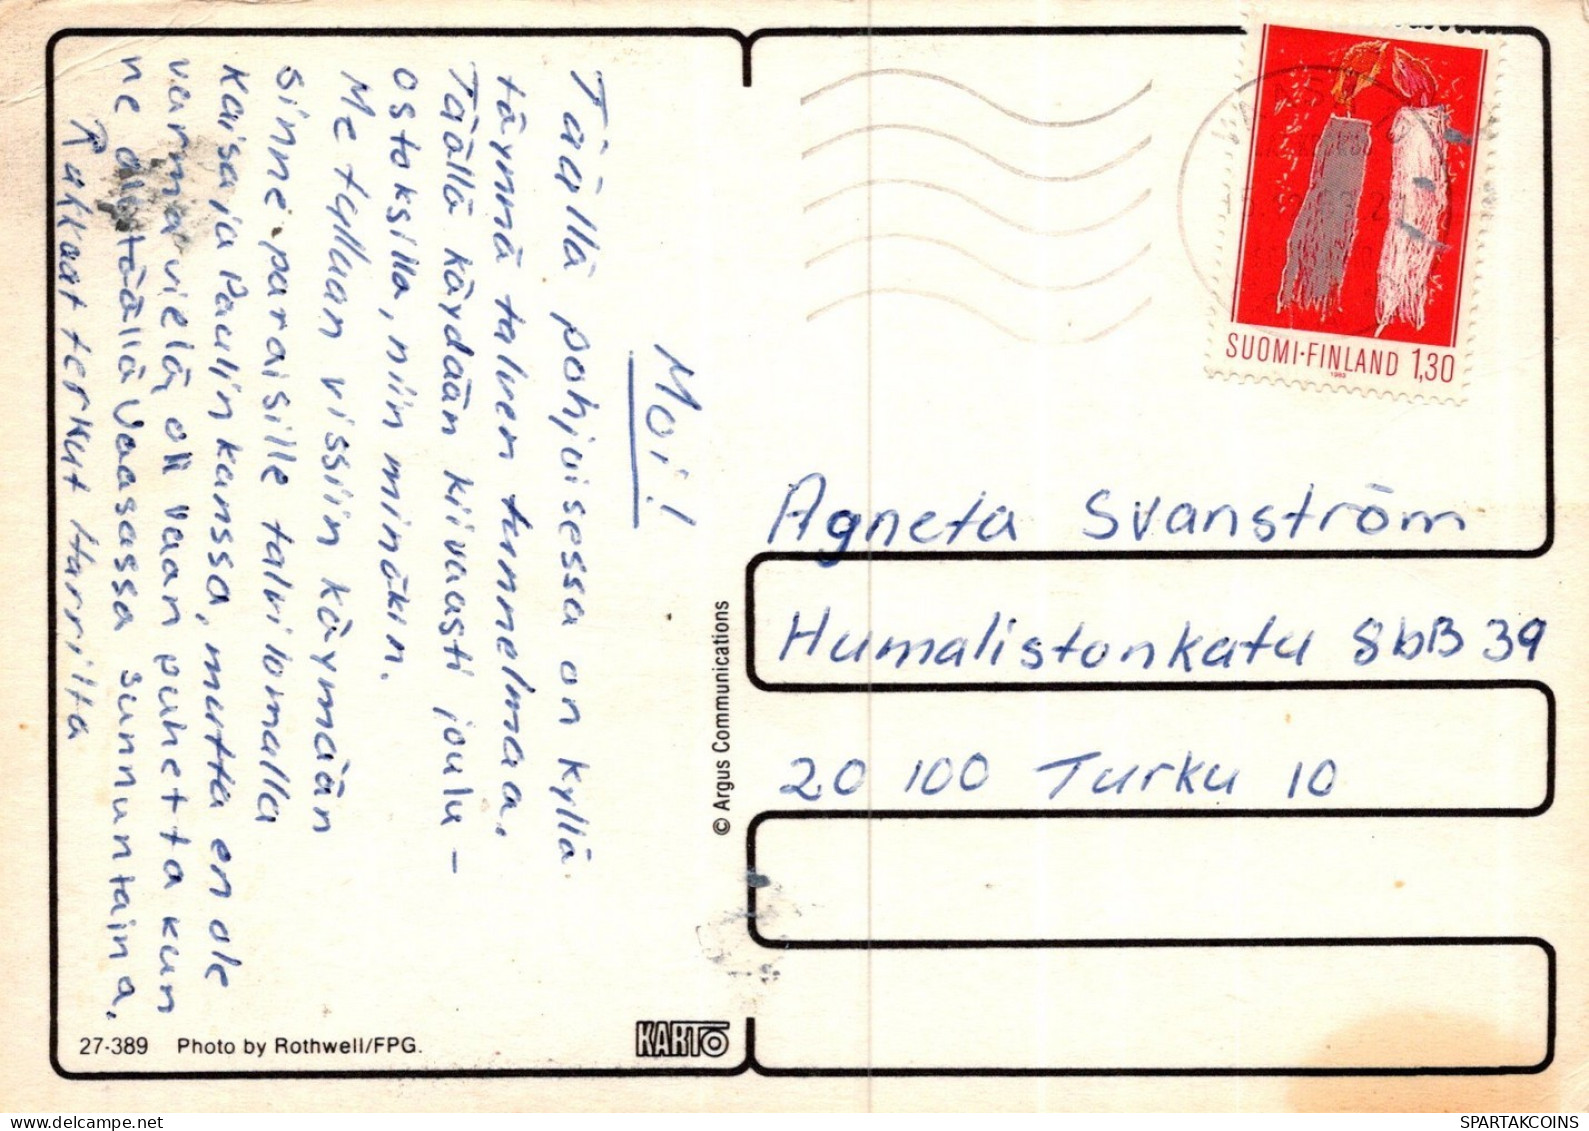 Moi!
Täällä pohjoisessa on kyllä
täynnä talven tunnelmaa.
Täällä käydään kiivaasti joulu-
ostoksilla, niin minäkin.
Me tullaan vissiin käymään
sinne paraisille talvilomalla
Kaisa ja Paulin kanssa, mutta en ole
varma vielä, oli vaan puhetta kun
ne oli täällä Vaasassa sunnuntaina.
Rakkaat terkut Harrilta
SUOMI·FINLAND 1,30
1983
Agneta Svanström
Humalistonkatu 8bB 39
20 100 Turku 10
© Argus Communications
27-389 Photo by Rothwell/FPG.
KARTO
SPARTAKCOINS